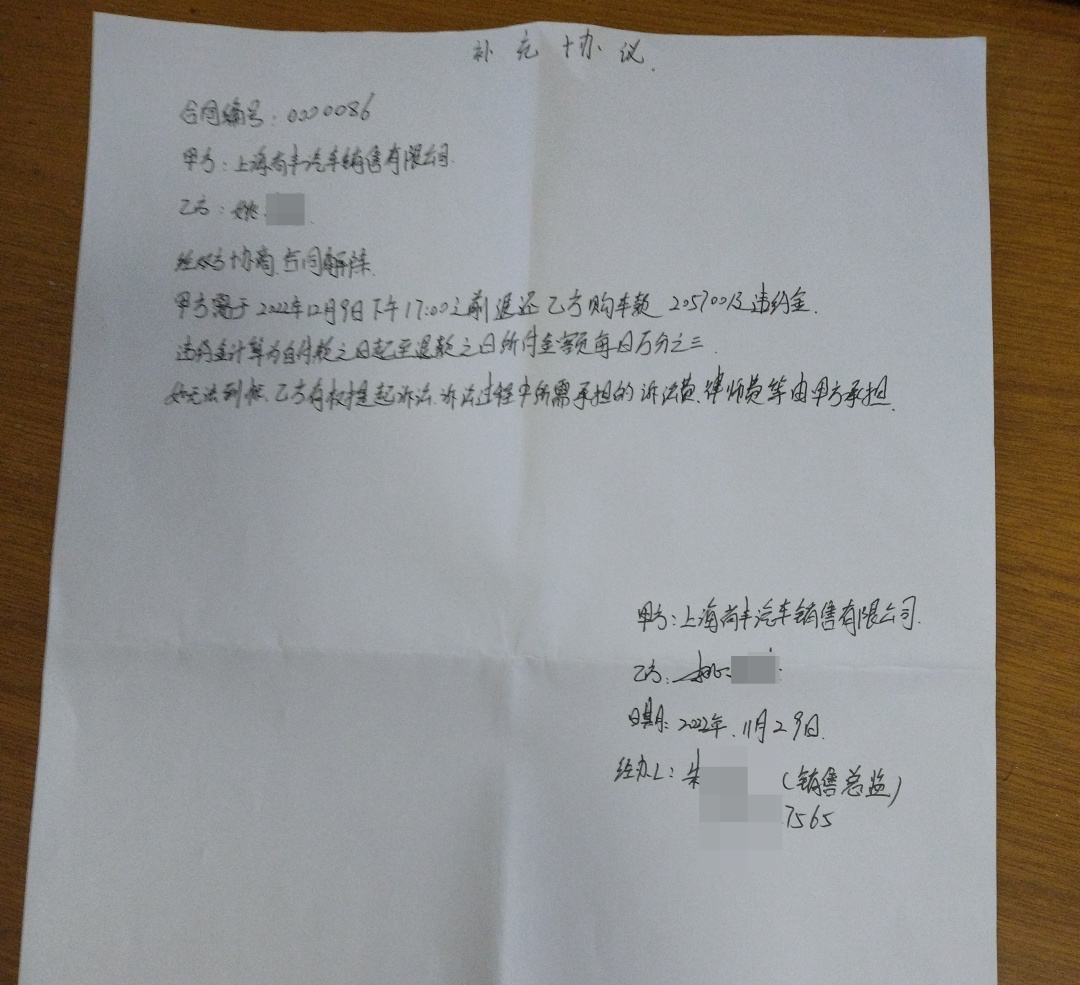 补充协议.
合同编号: 0000086
甲方: 上海尚丰汽车销售有限公司.
乙方: 姚
经双方协商,合同解除.
甲方需于2022年12月9日下午17:00之前退还乙方购车款 205700及违约金.
违约金计算为自付款之日起至退款之日所付金额每日万分之三.
如无法到帐,乙方有权提起诉法,诉法过程中所需承担的诉法费、律师费等由甲方承担.
甲方: 上海尚丰汽车销售有限公司.
乙方: 姚
日期: 2022年.11月29日.
经办人: 朱 (销售总监)
7565